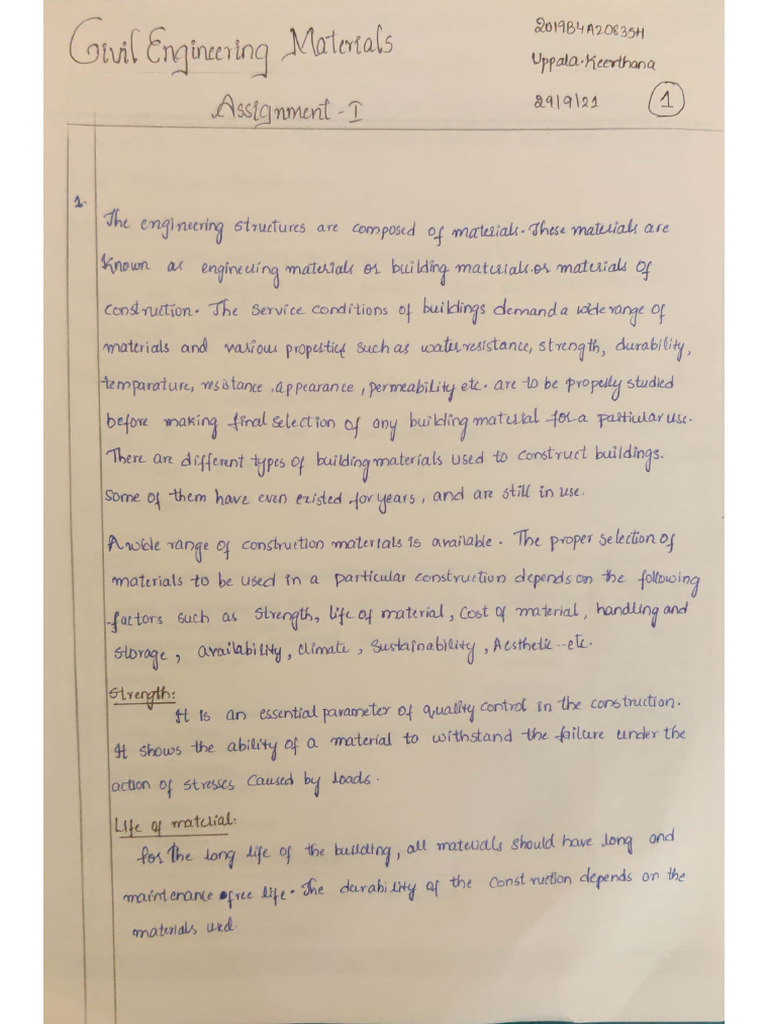 Civil Engineering Materials
Assignment - I
2019B4A20835H
Uppala. Keerthana
29/9/21
1
1.
The engineering structures are composed of materials. These materials are
known as engineering materials or building materials or materials of
construction. The service conditions of buildings demand a wide range of
materials and various properties such as water resistance, strength, durability,
temparature, resistance, appearance, permeability etc. are to be properly studied
before making final selection of any building material for a particular use.
There are different types of building materials used to construct buildings.
Some of them have even existed for years, and are still in use.
A wide range of construction materials is available. The proper selection of
materials to be used in a particular construction depends on the following
factors such as strength, life of material, cost of material, handling and
storage, availability, climate, sustainability, Aesthetic--etc.
Strength:
It is an essential parameter of quality control in the construction.
It shows the ability of a material to withstand the failure under the
action of stresses caused by loads.
Life of material.
for The long life of the building, all materials should have long and
maintenance free life. The durability of the construction depends on the
materials used.